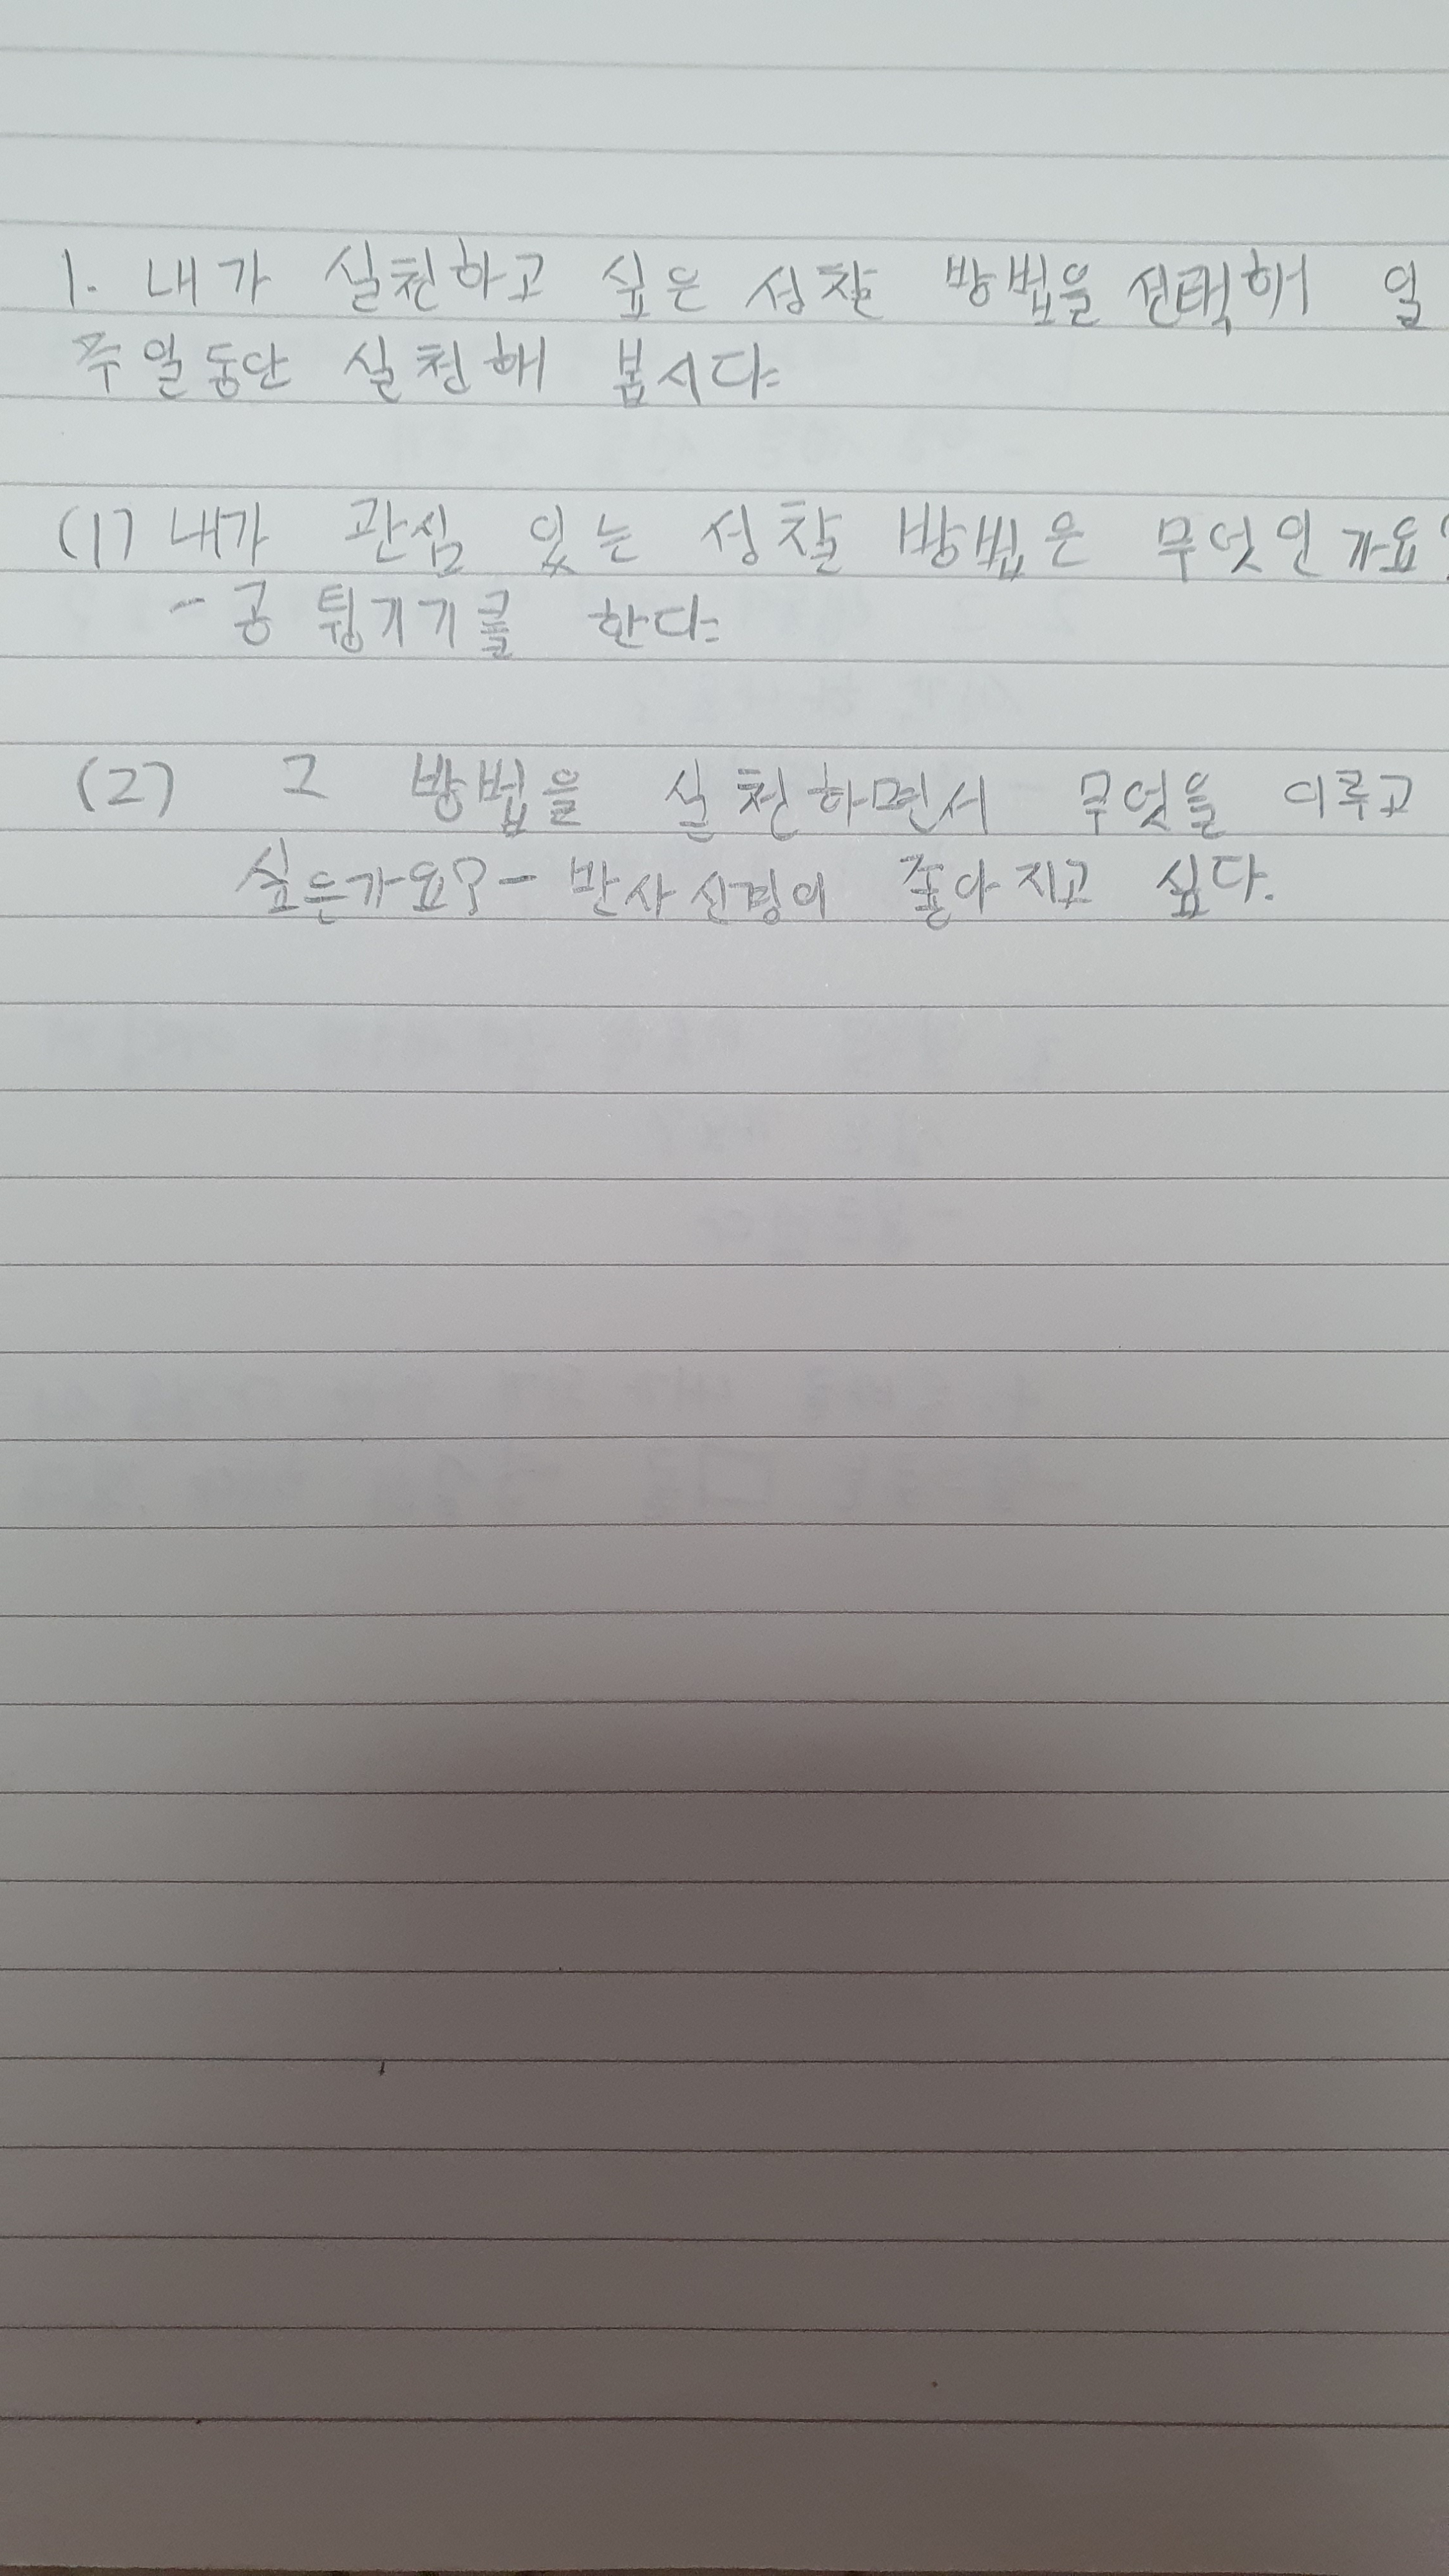 1. 내가 실천하고 싶은 성찰 방법을 선택해 일
주일동안 실천해 봅시다.
(1) 내가 관심 있는 성찰 방법은 무엇인가요?
- 공 튕기기를 한다.
(2) 그 방법을 실천하면서 무엇을 이루고
싶은가요? - 반사신경이 좋아지고 싶다.